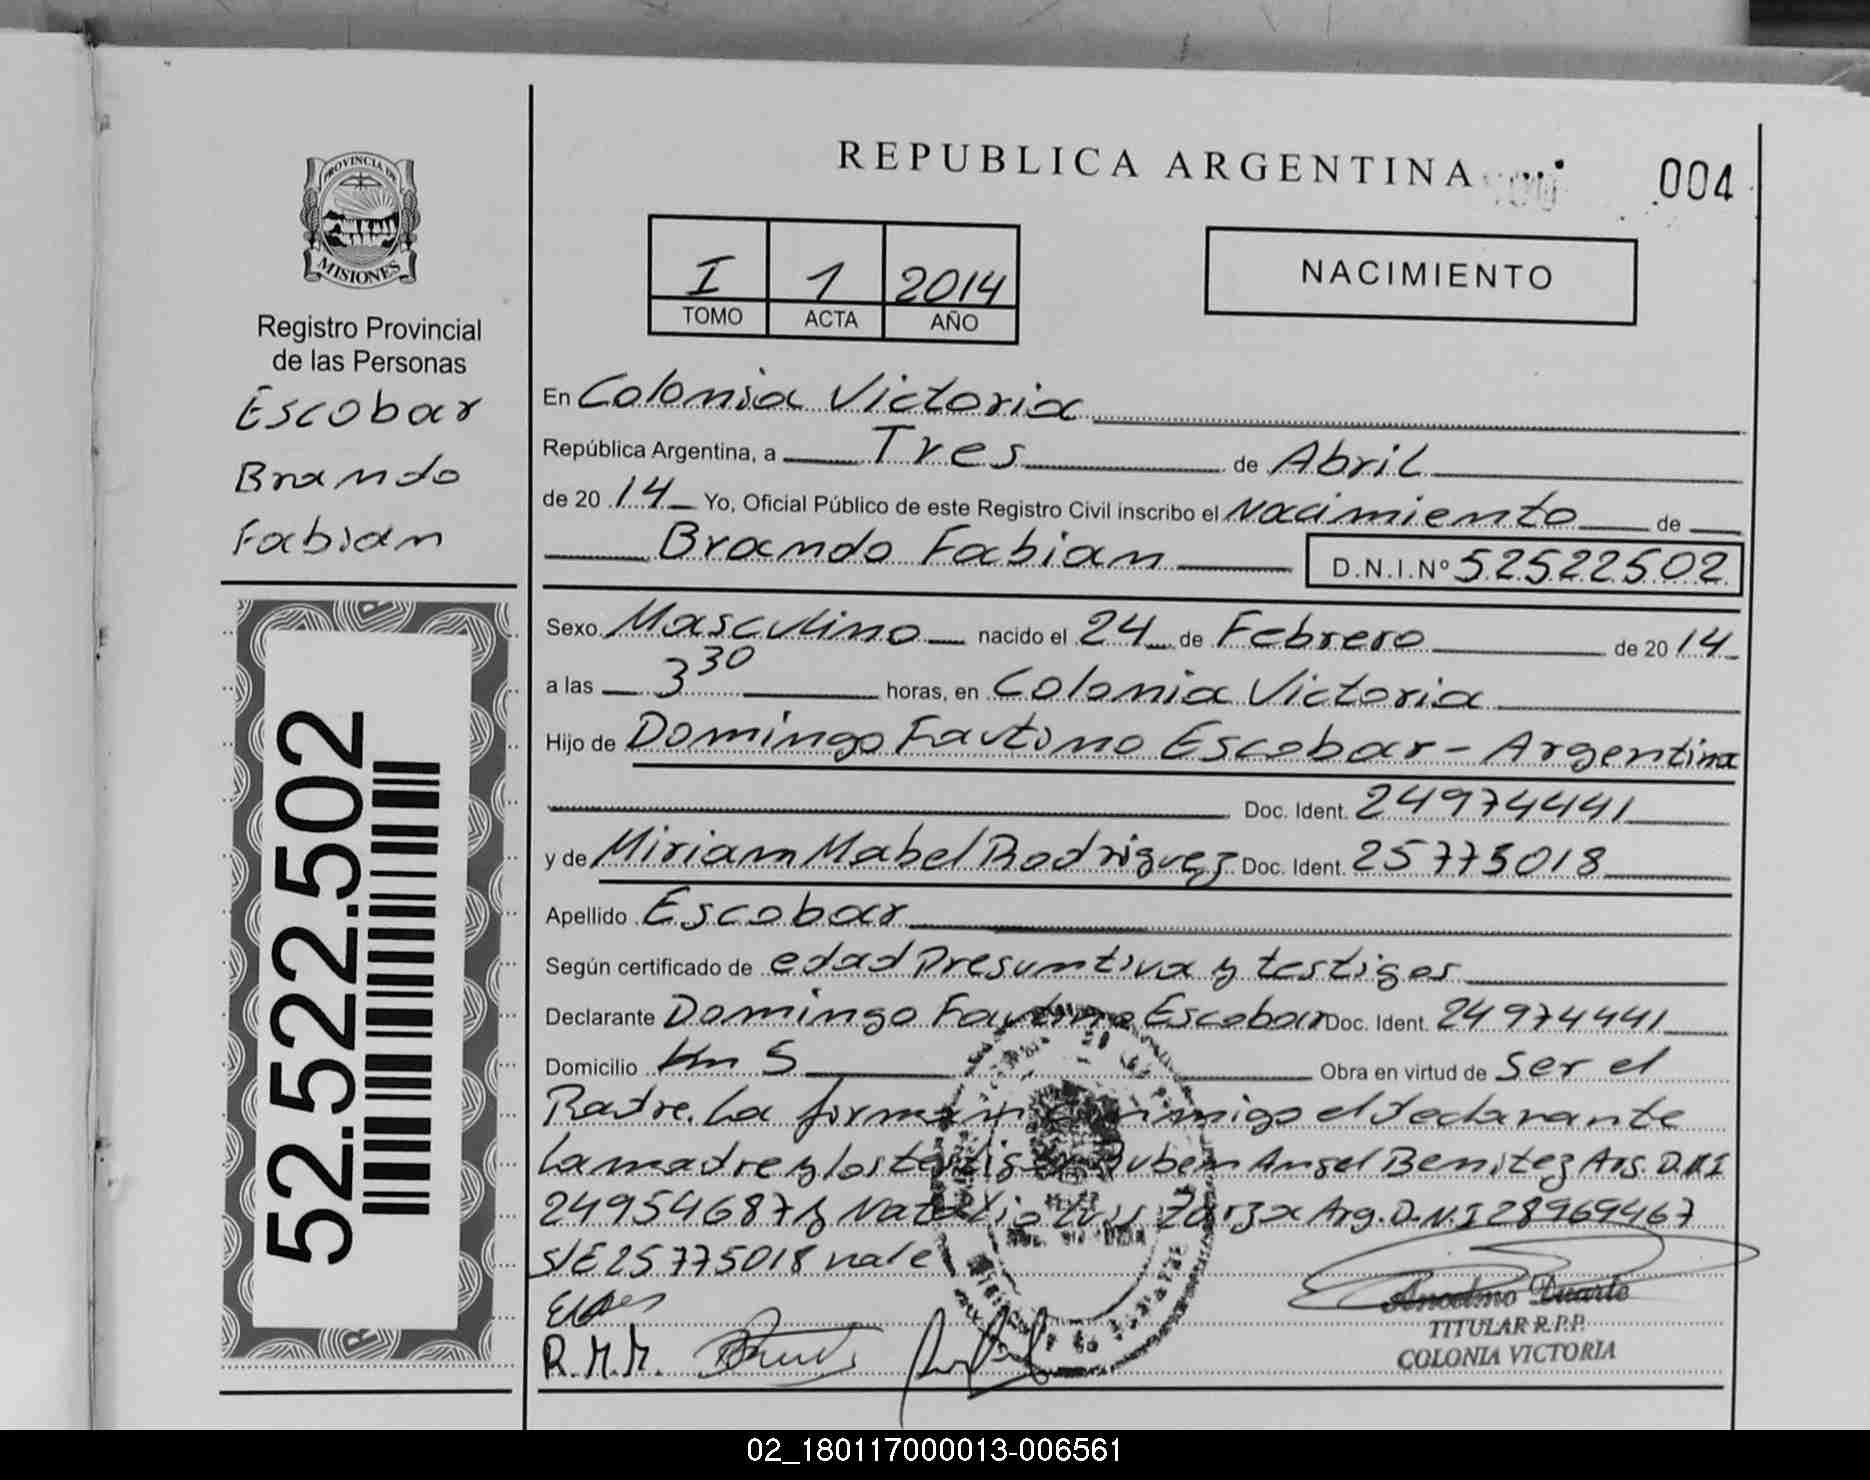 PROVINCIA DE
MISIONES
Registro Provincial
de las Personas
Escobar
Brando
Fabian
52.522.502
REPUBLICA ARGENTINA
004
I 1 2014
TOMO ACTA AÑO
NACIMIENTO
En Colonia Victoria
República Argentina, a Tres de Abril
de 20 14 Yo, Oficial Público de este Registro Civil inscribo el Nacimiento de
Brando Fabian D.N.I.Nº 52522502
Sexo Masculino nacido el 24 de Febrero de 20 14
a las 3 30 horas, en Colonia Victoria
Hijo de Domingo Fautino Escobar - Argentina
Doc. Ident. 24974441
y de Miriam Mabel Rodriguez Doc. Ident. 25775018
Apellido Escobar
Según certificado de edad Presuntiva y testigos
Declarante Domingo Fautino Escobar Doc. Ident. 24974441
Domicilio Km 5 Obra en virtud de ser el
Padre. La firman conmigo el declarante
la madre y los testigos Ruben Angel Benitez Arg. D.N.I
24954687 y Natalio Luis Zarza Arg. D.N.I 28969467
S/E 25775018 vale
R.M.M.
Anselmo Duarte
TITULAR R.P.P.
COLONIA VICTORIA
02_180117000013-006561